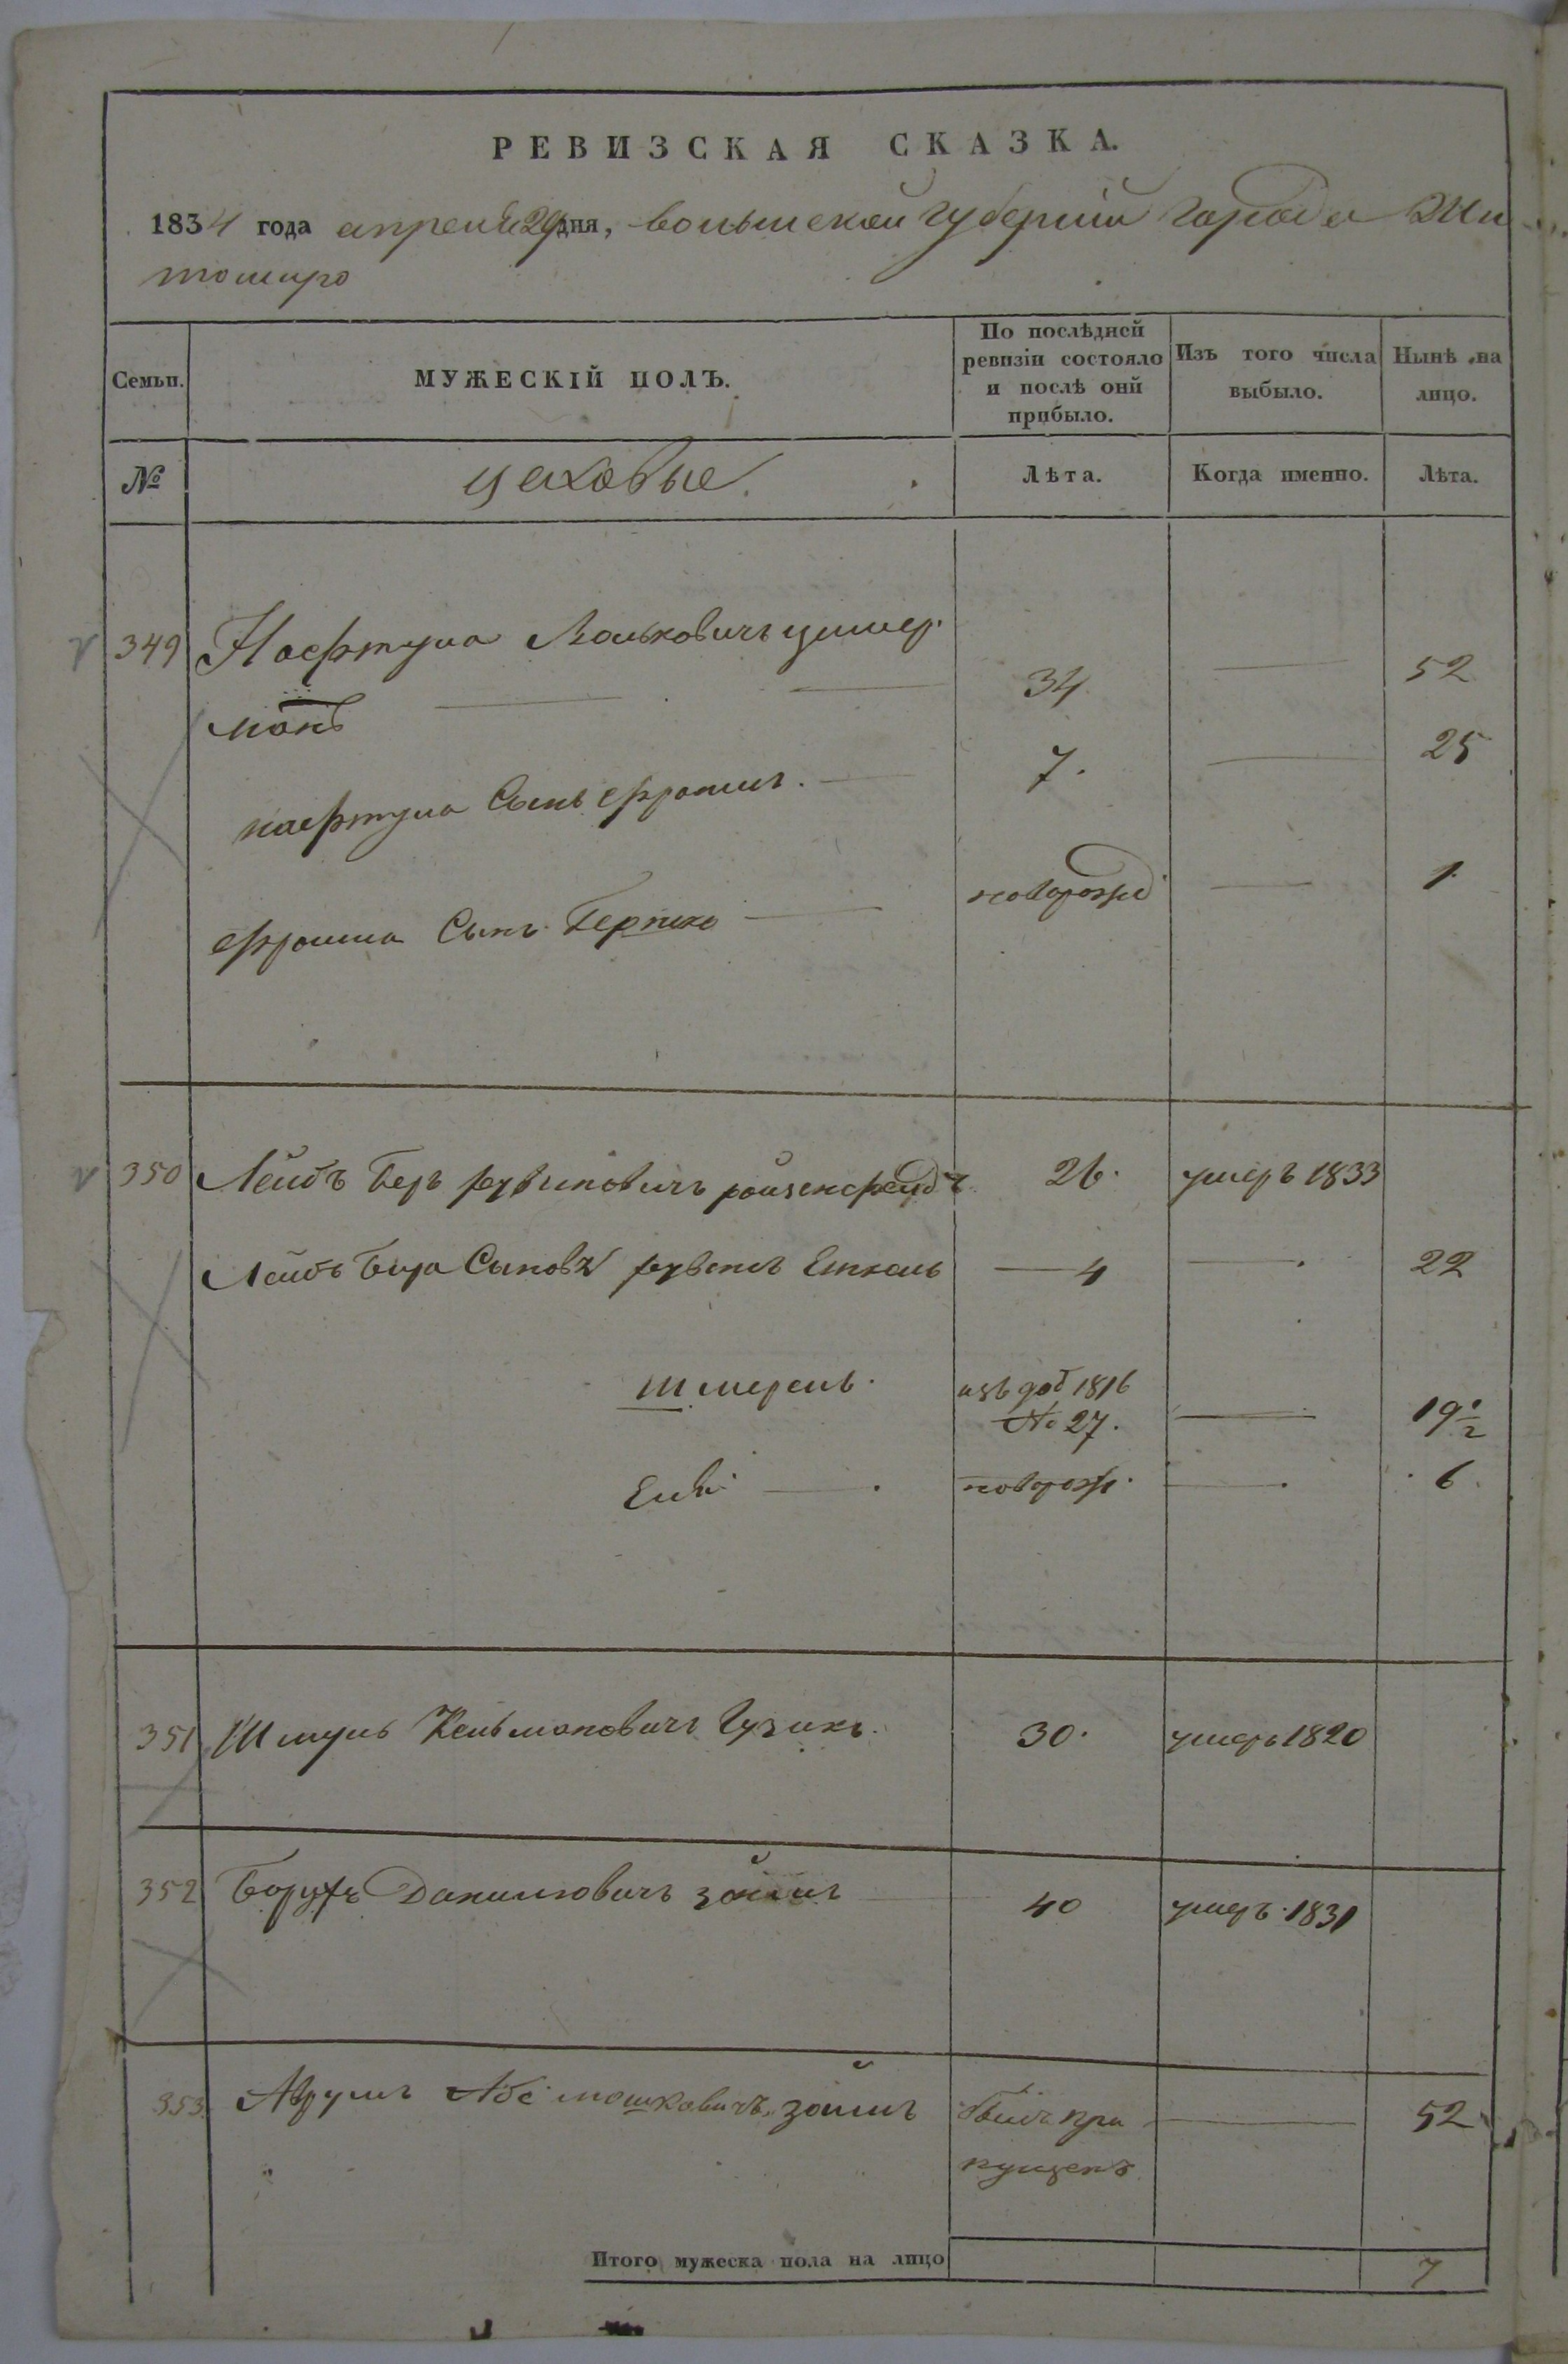 РЕВИЗСКАЯ СКАЗКА.
1834 года апреля 29 дня, волынской губернии города Жи
томиро
Семьи.
МУЖЕСКІЙ ПОЛЪ.
По послѣдней ревизіи состояло и послѣ оній прибыло.
Изъ того числа выбыло.
Нынѣ на лицо.
№
цеховые.
Лѣта.
Когда именно.
Лѣта.
349 Нафтула Волковичъ цимер
манъ 34 52
нафтула Сынъ ефроимъ. 7. 25
ефроима Сынъ Берко новорожд 1
350 Лейбъ Беръ рувиновичъ ройзенфелдъ 26. умеръ 1833
Лейбъ Бера Сыновя рувенъ Еткель 4 22
Шмерель. изъ доб 1816 № 27. 19 1/2
новорож. 6.
351 Шмуль Кельмановичъ Гузикъ. 30. умеръ 1820
352 Борухъ Даниловичъ зойлиъ 40 умеръ 1831
353. Аврумъ Абе мошковичъ зойлиъ былъ про 52
пущенъ
Итого мужеска пола на лицо 7